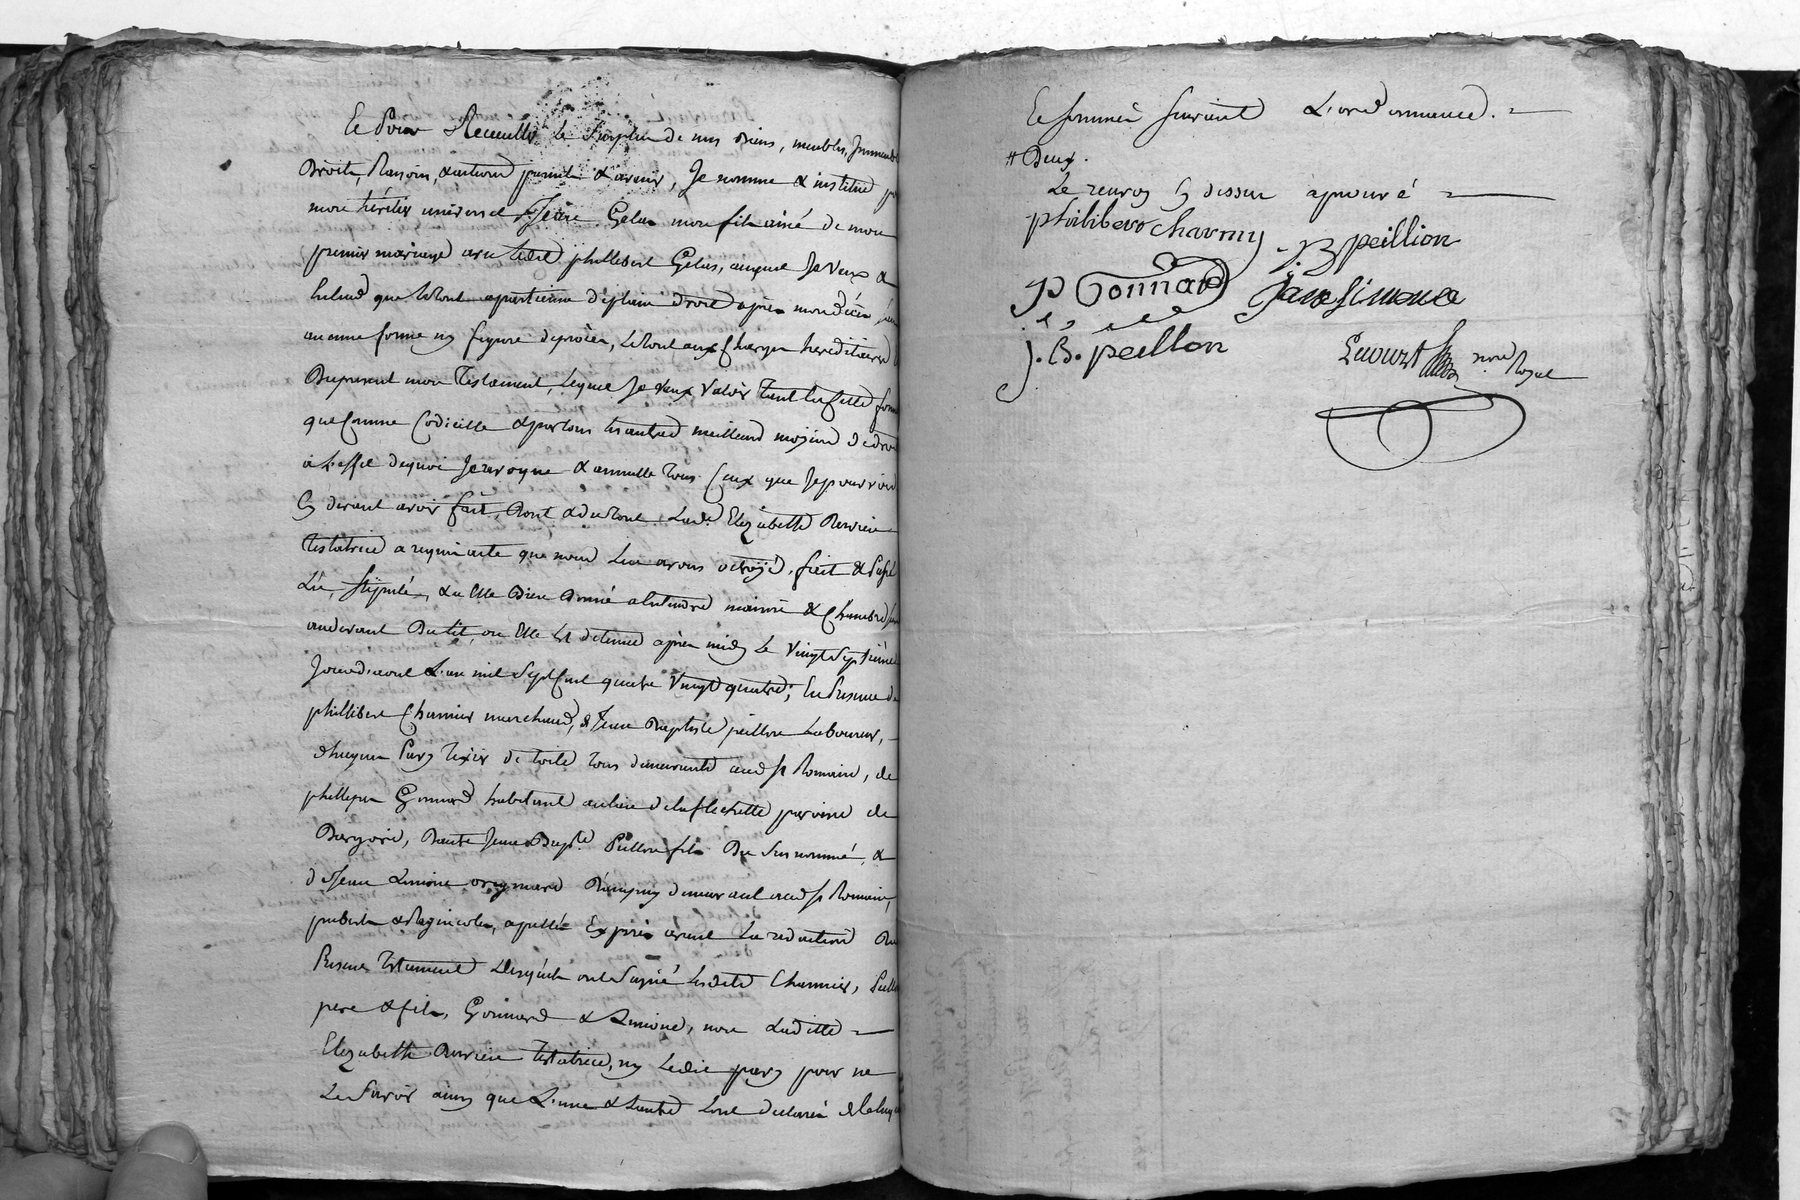 Et Pour Recueillir le surplus de mes biens, meubles, Immeubles
Droits, Raisons, & actions présents & avenir, Je nomme & institue
mon héritier universel Jean Gelas mon fils ainé de mon
premier mariage avec ledit phillibert Gelas, auquel Je Veux &
entend que le tout apartienne de plein droit après mon décès
aucune forme ny figure de procès, Le tout aux Charges hereditaires
Du présent mon Testament, Lequel Je veux Valoir Tant En cette forme
que Comme Codicille & par tous les autres meilleurs moyens de droit
à L'effet de quoi Je revoque & annulle tous Ceux que Je pourrois
Cy devant avoir fait, Dont & du tout Lade. Elizabeth
testatrice a requis acte que nous Luy avons octroyé, fait & Passé
Lû, Stipulé, & a Elle bien Donné a Entendre maison & Chambre
au devant Du lit, ou Elle Est detenue après midy Le Vingt Septième
Jour d'aout L'an mil Sept Cent quatre Vingt quatre; En Présence de
phillibert Charmier marchand, & Jean Baptiste peillon Laboureur,
hugues Pary Tixier de toile tous demeurants aud St Romain, de
phillipe Gonnard habitant au lieu de la flechette paroisse de
Dargoire, Dautre Jean Bapte. Peillon fils Du Susnommé, &
de Jean Simone demeurant aud St Romain,
présents & Requis, apellés Exprès avant La rédaction Du
Présent Testament Lesquels ont Signé Lesdits Charmier, Peillon
pere & fils, Gonnard & Simone, non Laditte
Elizabeth testatrice, ny Ledit pary pour ne
Le Savoir ainsy que L'une & L'autre L'ont declaré de Ce Enquis
Et sommés suivant L'ordonnance.
# Deux.
Le renvoy Cy dessus aprouvé
philibero charmy
J. B peillion
P Gonnard
Jane Simone
J. B. peillon
nore Royal